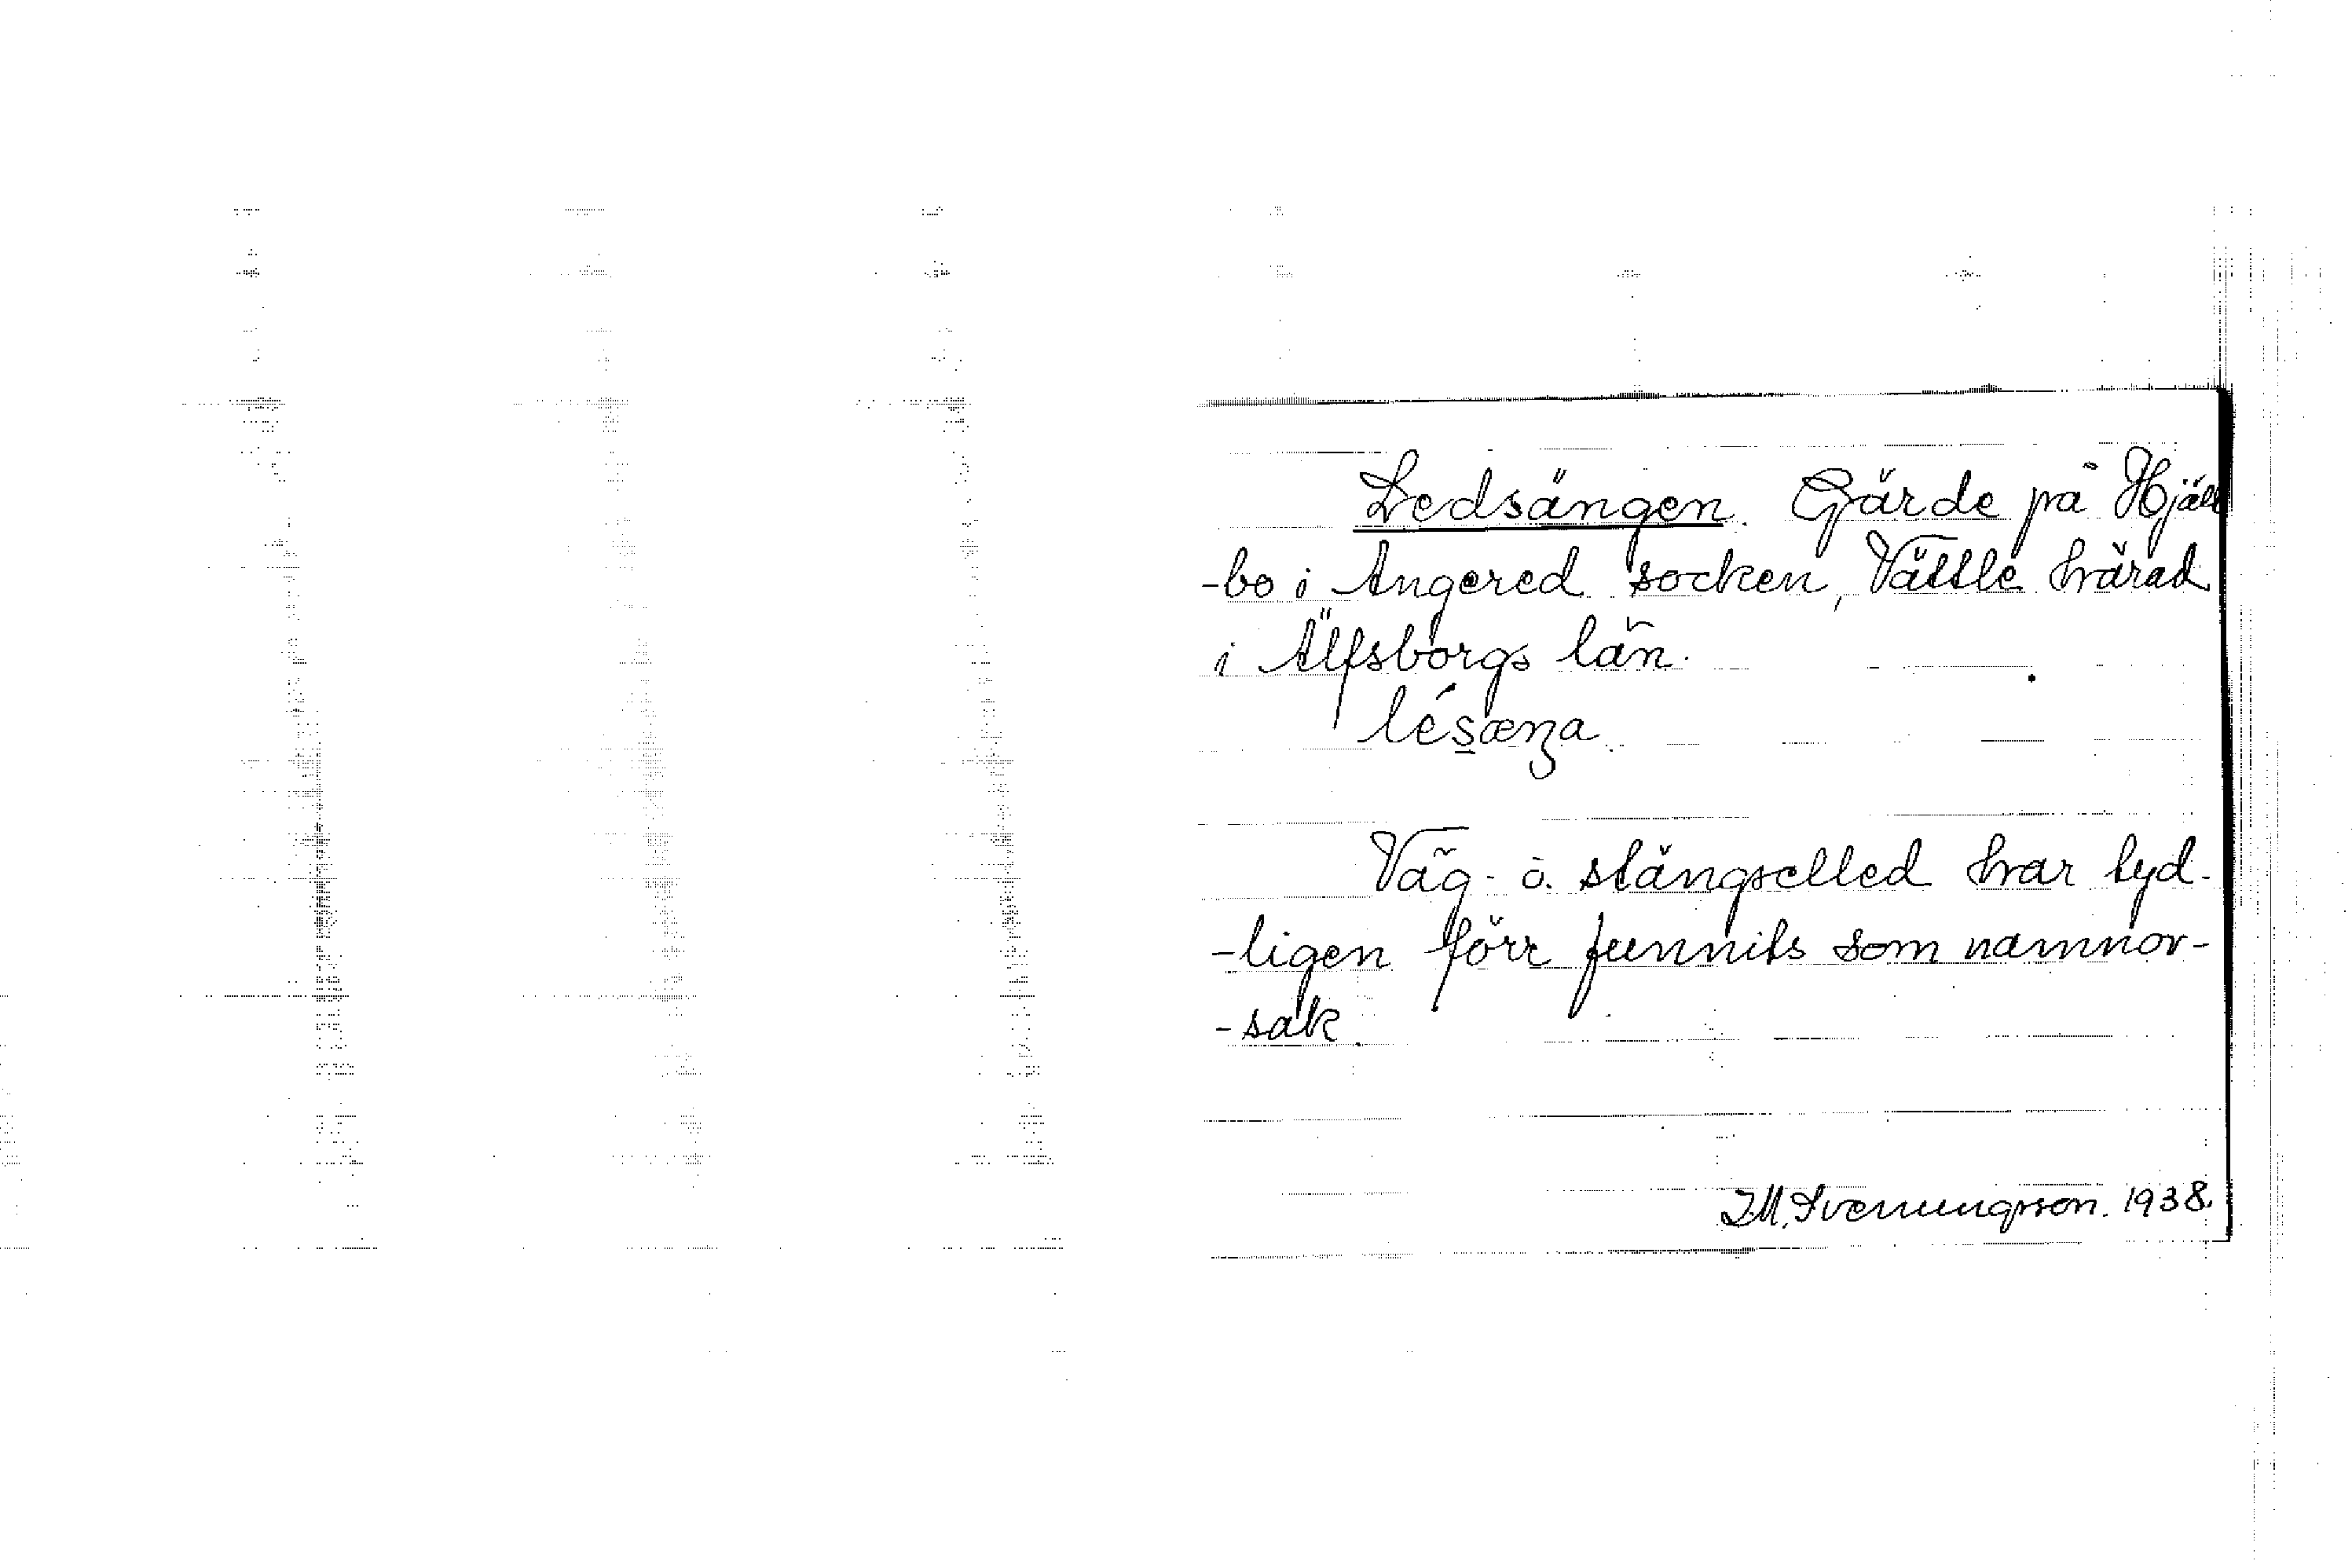 Ledsängen. Gärde på Hjäll
-bo i Angered socken, Vättle härad
i Älfsborgs län.
lésænga
Väg- o. stängselled har tyd-
-ligen förr funnits som namnor-
-sak.
J.M. Svenungsson. 1938.